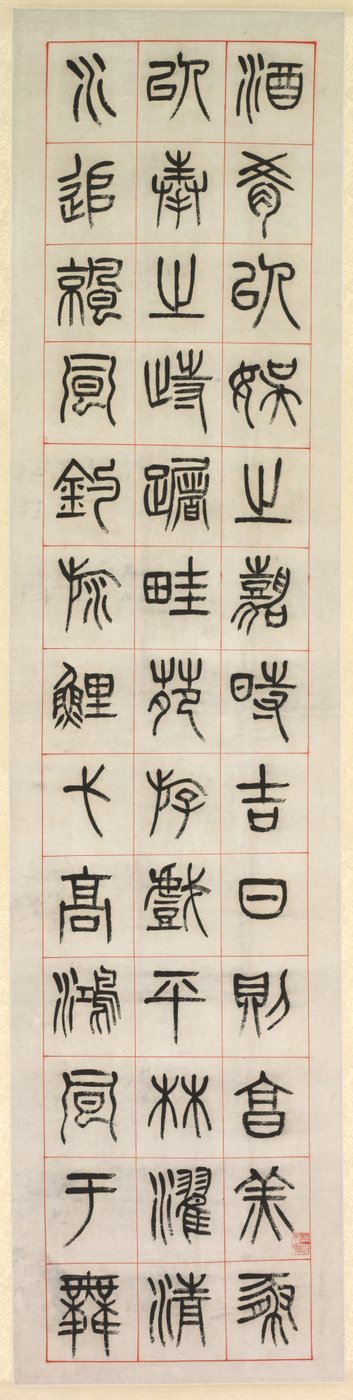 酒肴以娛之嘉時吉日則亯羔豚
以奉之歭躇畦苑斿戲平林濯清
水追風釣游鯉弋高鴻風于舞